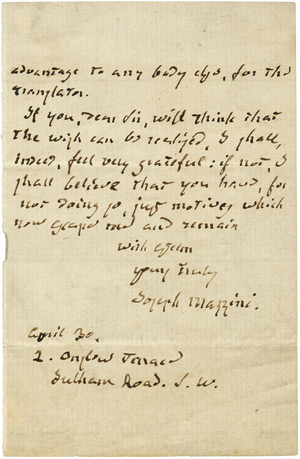 advantage to any body else, for the
translator.
If you, dear Sir, will think that
the wish can be realized, I shall,
indeed, feel very grateful: if not, I
shall believe that you have, for
not doing so, just motives which
now escape me and remain
with esteem
yours truly
Joseph Mazzini.
April 30.
2. Onslow Terrace
Fulham Road. S.W.